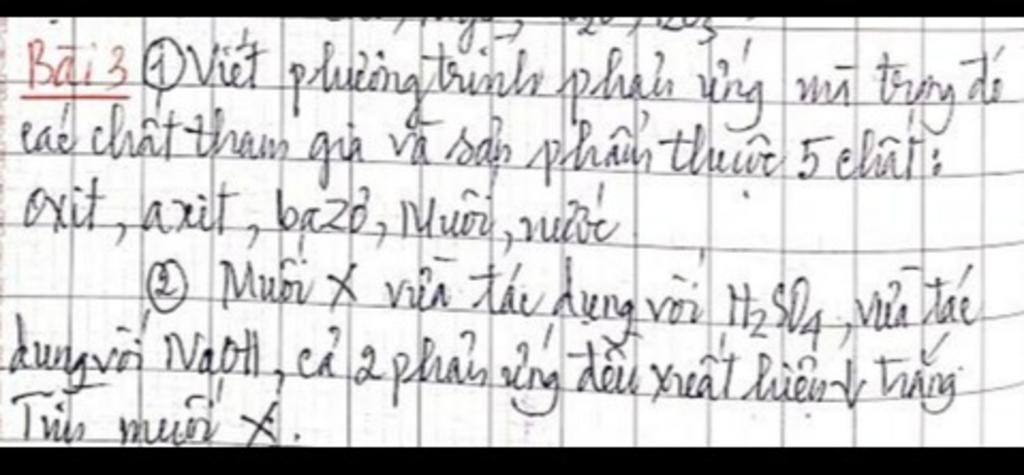 Bài 3 ① Viết phương trình phản ứng mà trong đó
các chất tham gia và sản phẩm thuộc 5 chất:
oxit, axit, bazơ, Muối, nước
② Muối X vừa tác dụng với H₂SO₄, vừa tác
dụng với NaOH, cả 2 phản ứng đều xuất hiện ↓ trắng
Tìm muối X.